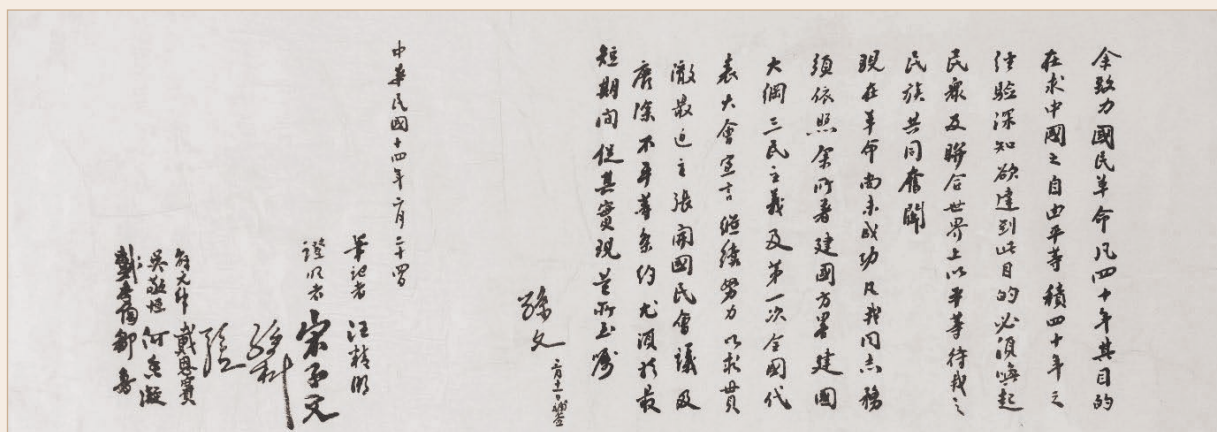 余致力國民革命凡四十年其目的
在求中國之自由平等積四十年之
經驗深知欲達到此目的必須喚起
民眾及聯合世界上以平等待我之
民族共同奮鬬
現在革命尚未成功凡我同志務
須依照余所著建國方畧建國
大綱三民主義及第一次全國代
表大會宣言繼續努力以求貫
澈最近主張開國民會議及
廢除不平等條約尤須於最
短期間促其實現是所至囑
孫文 三月十一日補簽
中華民國十四年二月二十四日
筆記者 汪精衛
證明者 宋子文
孫科
邵元沖 戴恩賽
吳敬恆 何香凝
鄒魯